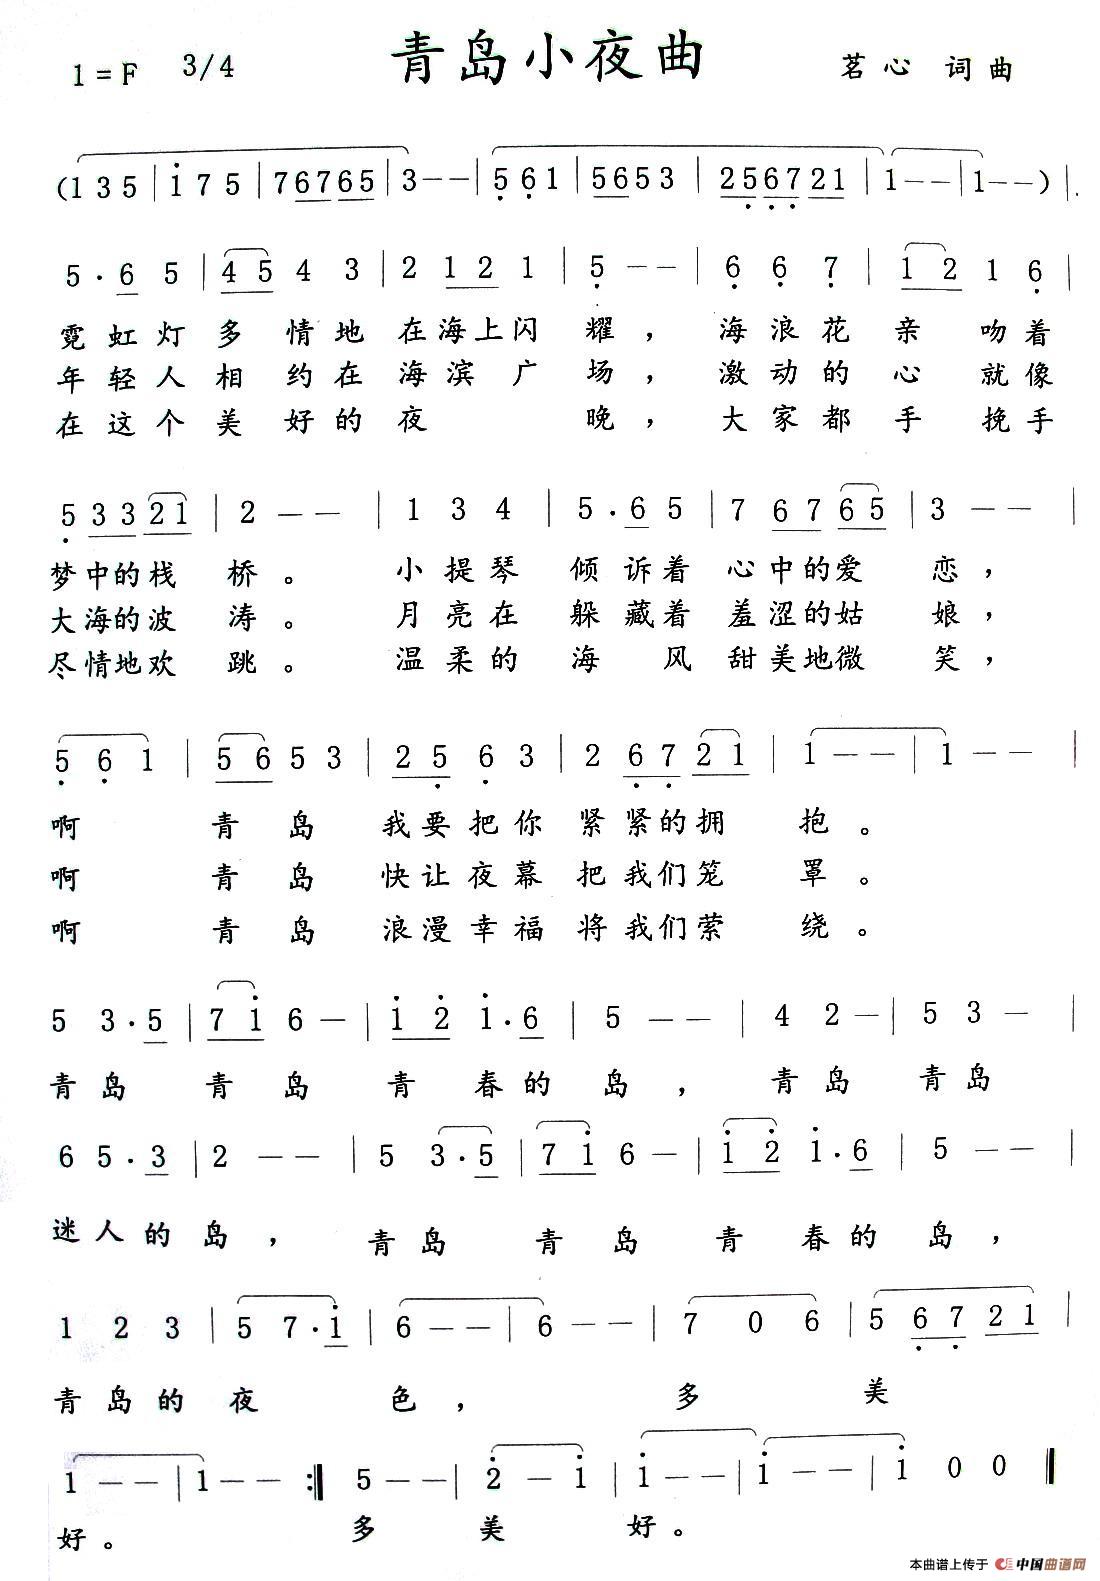 青岛小夜曲
1=F 3/4 茗心 词曲
(1 3 5 | i 7 5 | 7 6 7 6 5 | 3 - - | 5 6 1 | 5 6 5 3 | 2 5 6 7 2 1 | 1 - - | 1 - - ) |
5 · 6 5 | 4 5 4 3 | 2 1 2 1 | 5 - - | 6 6 7 | 1 2 1 6 |
霓虹灯多情地在海上闪耀，海浪花亲吻着
年轻人相约在海滨广场，激动的心就像
在这个美好的夜晚，大家都手挽手
5 3 3 2 1 | 2 - - | 1 3 4 | 5 · 6 5 | 7 6 7 6 5 | 3 - - |
梦中的栈桥。小提琴倾诉着心中的爱恋，
大海的波涛。月亮在躲藏着羞涩的姑娘，
尽情地欢跳。温柔的海风甜美地微笑，
5 6 1 | 5 6 5 3 | 2 5 6 3 | 2 6 7 2 1 | 1 - - | 1 - - |
啊青岛我要把你紧紧的拥抱。
啊青岛快让夜幕把我们笼罩。
啊青岛浪漫幸福将我们萦绕。
5 3 · 5 | 7 i 6 - | i 2 i · 6 | 5 - - | 4 2 - | 5 3 - |
青岛青岛青春的岛，青岛青岛
6 5 · 3 | 2 - - | 5 3 · 5 | 7 i 6 - | i 2 i · 6 | 5 - - |
迷人的岛，青岛青岛青春的岛，
1 2 3 | 5 7 · i | 6 - - | 6 - - | 7 0 6 | 5 6 7 2 1 |
青岛的夜色，多美
1 - - | 1 - - :‖ 5 - - | 2 - i | i - - | i - - | i 0 0 ‖
好。多美好。
本曲谱上传于 中国曲谱网